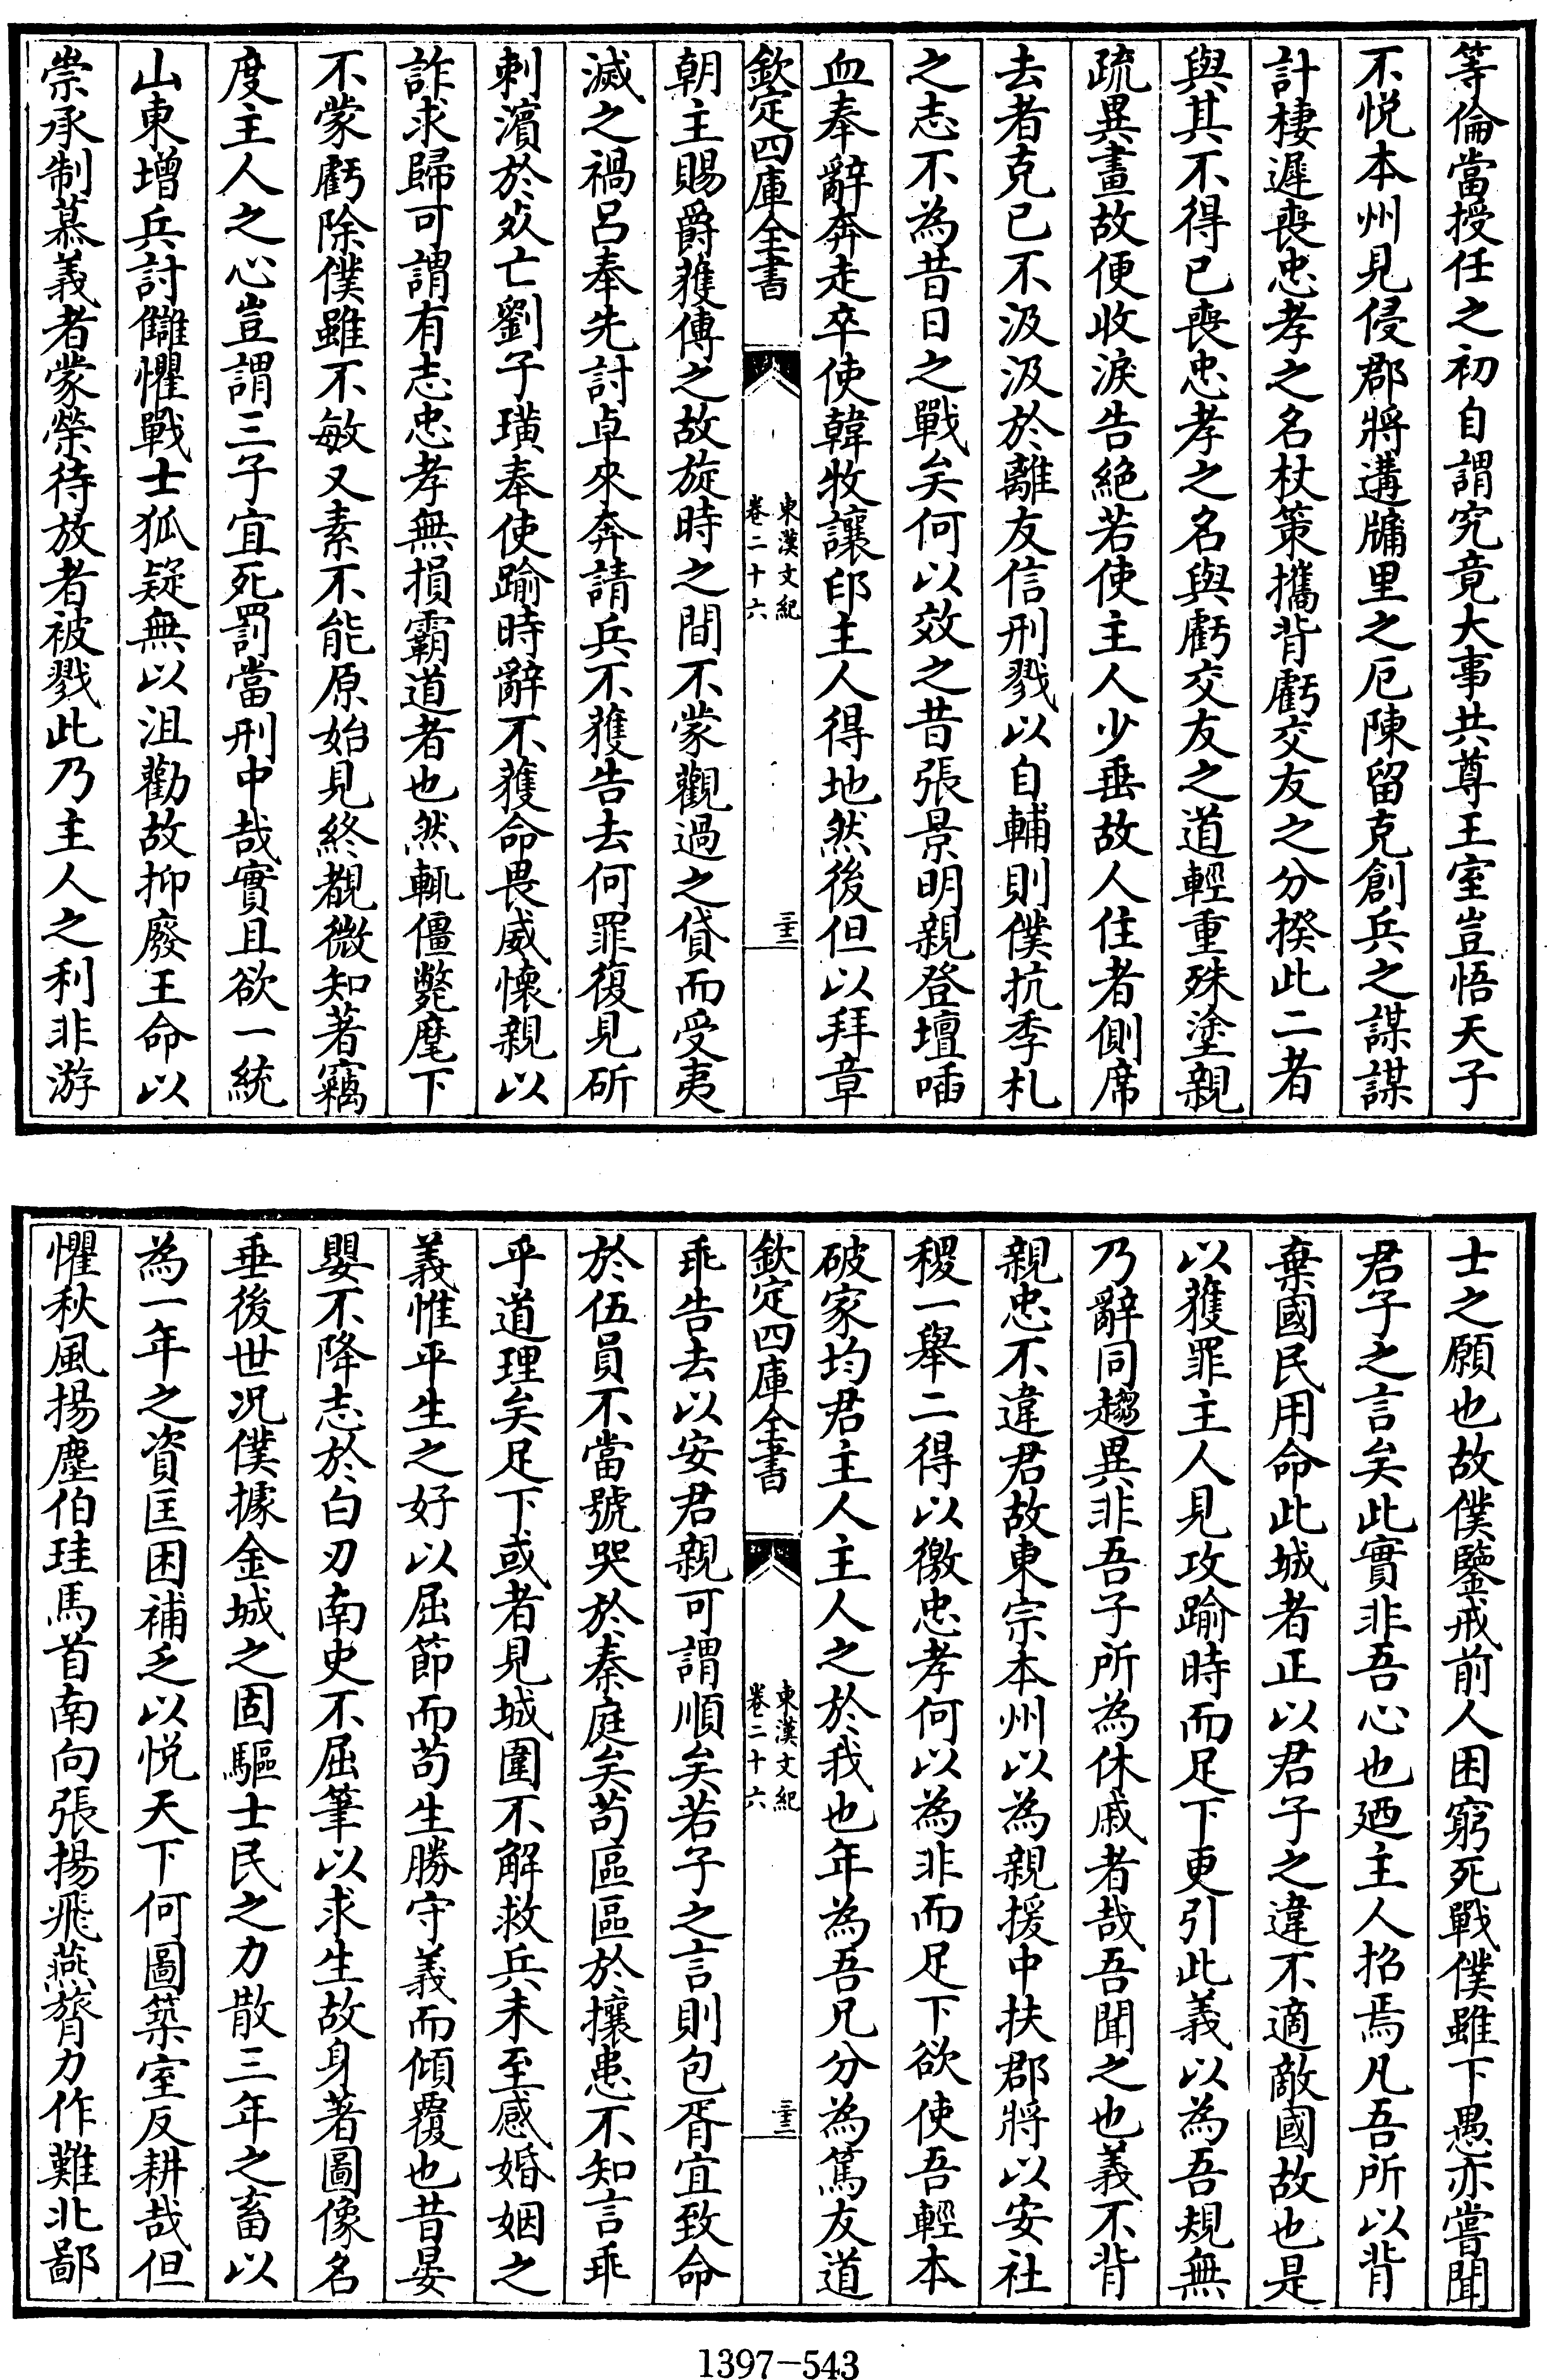 等倫當授任之初自謂究竟大事共尊王室豈悟天子
不悦本州見侵郡將遘牖里之厄陳留克創兵之謀謀
計棲遲喪忠孝之名杖策攜背虧交友之分揆此二者
與其不得已喪忠孝之名與虧交友之道輕重殊塗親
疏異畫故便收淚告絶若使主人少垂故人住者側席
去者克已不汲汲於離友信刑戮以自輔則僕抗季札
之志不為昔日之戰矣何以效之昔張景明親登壇喢
血奉辭奔走卒使韓牧讓印主人得地然後但以拜章
欽定四庫全書
東漢文紀
卷二十六
三十三
朝主賜爵獲傳之故旋時之間不蒙觀過之貸而受夷
滅之禍呂奉先討卓來奔請兵不獲告去何罪復見斫
刺濱於死亡劉子璜奉使踰時辭不獲命畏威懷親以
詐求歸可謂有志忠孝無損霸道者也然輒僵斃麾下
不蒙虧除僕雖不敏又素不能原始見終覩微知著竊
度主人之心豈謂三子宜死罰當刑中哉實且欲一統
山東增兵討讎懼戰士狐疑無以沮勸故抑廢王命以
崇承制慕義者蒙榮待放者被戮此乃主人之利非游
士之願也故僕鑒戒前人困窮死戰僕雖下愚亦嘗聞
君子之言矣此實非吾心也廼主人招焉凡吾所以背
棄國民用命此城者正以君子之違不適敵國故也是
以獲罪主人見攻踰時而足下更引此義以為吾規無
乃辭同趨異非吾子所為休戚者哉吾聞之也義不背
親忠不違君故東宗本州以為親援中扶郡將以安社
稷一舉二得以徼忠孝何以為非而足下欲使吾輕本
破家均君主人主人之於我也年為吾兄分為篤友道
欽定四庫全書
東漢文紀
卷二十六
三十三
乖告去以安君親可謂順矣若子之言則包胥宜致命
於伍員不當號哭於秦庭矣苟區區於攘患不知言乖
乎道理矣足下或者見城圍不解救兵未至感婚姻之
義惟平生之好以屈節而苟生勝守義而傾覆也昔晏
嬰不降志於白刃南史不屈筆以求生故身著圖像名
垂後世况僕據金城之固驅士民之力散三年之畜以
為一年之資匡困補乏以悦天下何圖築室反耕哉但
懼秋風揚塵伯珪馬首南向張揚飛燕膂力作難北鄙
1397-543